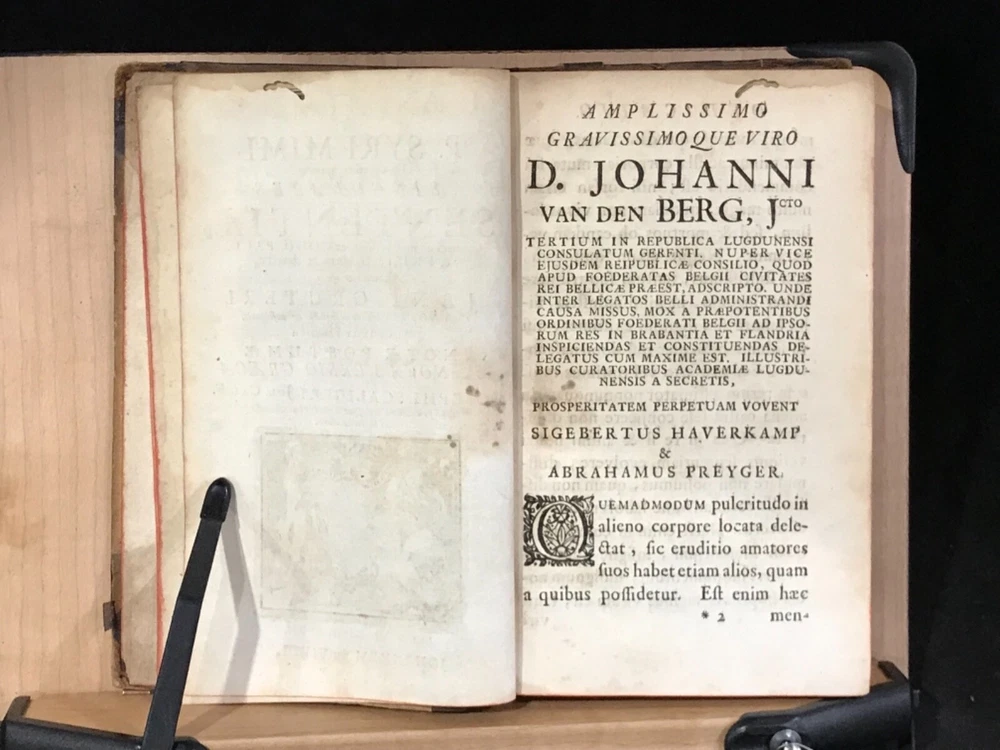 AMPLISSIMO
GRAVISSIMOQUE VIRO
D. JOHANNI
VAN DEN BERG, Jcto
TERTIUM IN REPUBLICA LUGDUNENSI
CONSULATUM GERENTI, NUPER VICE
EJUSDEM REIPUBLICÆ CONSILIO, QUOD
APUD FOEDERATAS BELGII CIVITATES
REI BELLICÆ PRÆEST, ADSCRIPTO. UNDE
INTER LEGATOS BELLI ADMINISTRANDI
CAUSA MISSUS, MOX A PRÆPOTENTIBUS
ORDINIBUS FOEDERATI BELGII AD IPSO-
RUM RES IN BRABANTIA ET FLANDRIA
INSPICIENDAS ET CONSTITUENDAS DE-
LEGATUS CUM MAXIME EST. ILLUSTRI-
BUS CURATORIBUS ACADEMIÆ LUGDU-
NENSIS A SECRETIS,
PROSPERITATEM PERPETUAM VOVENT
SIGEBERTUS HAVERKAMP
&
ABRAHAMUS PREYGER.
QUEMADMODUM pulcritudo in
alieno corpore locata dele-
ctat, sic eruditio amatores
suos habet etiam alios, quam
a quibus possidetur. Est enim hæc
* 2 men-